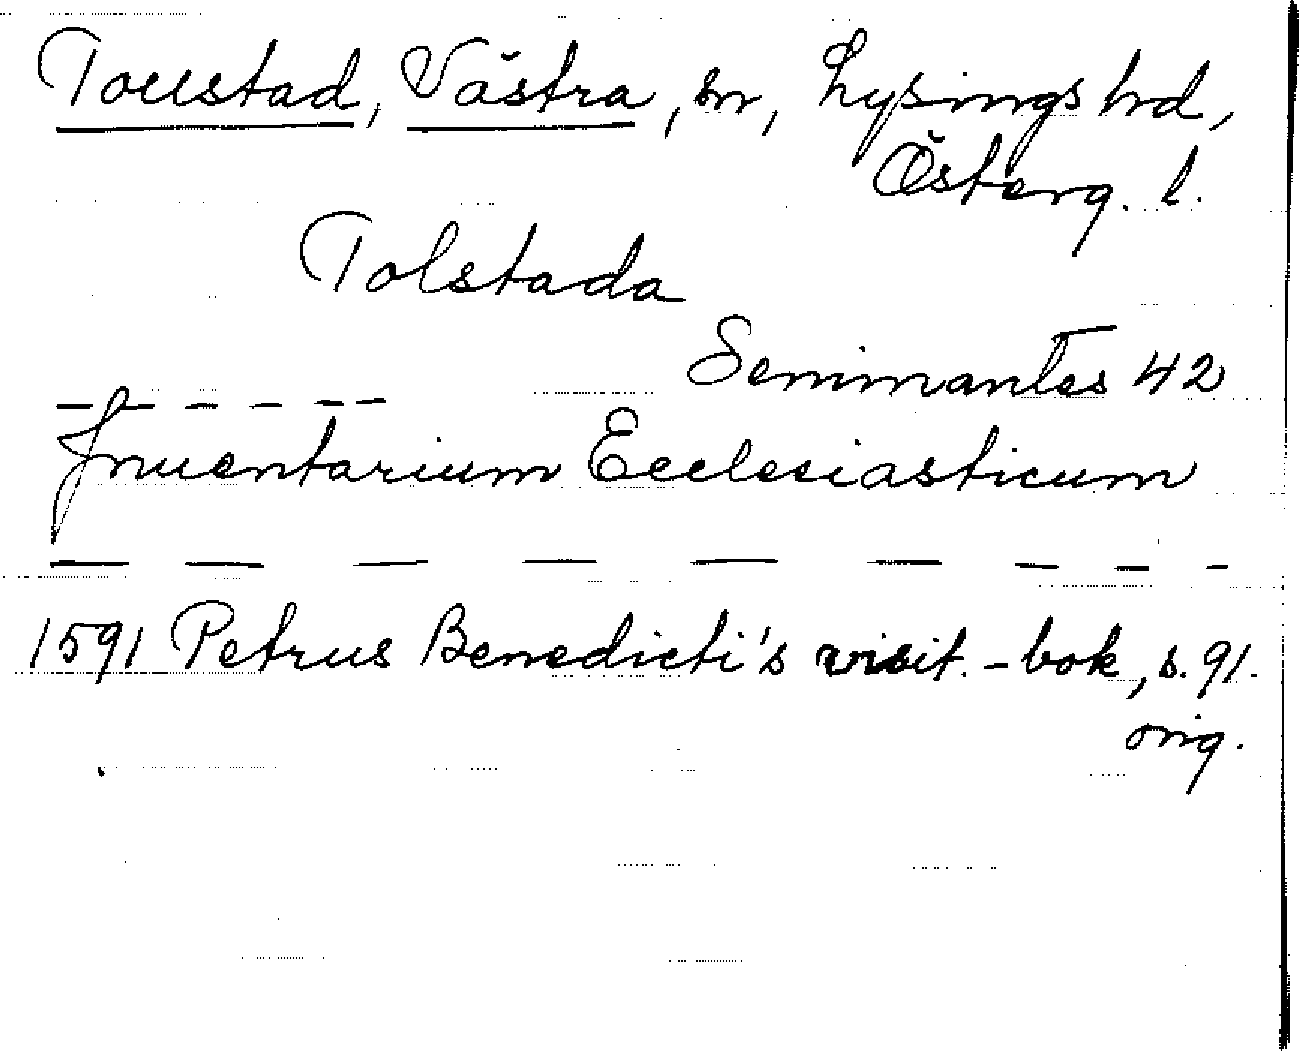 Tollstad, Västra, sn, Lysings hrd,
Österg. l.
Tolstada
Seminantes 42
— — — — — —
Inuentarium Ecclesiasticum
— — — — — — — — —
1591 Petrus Benedicti's visit.-bok, s. 91.
orig.